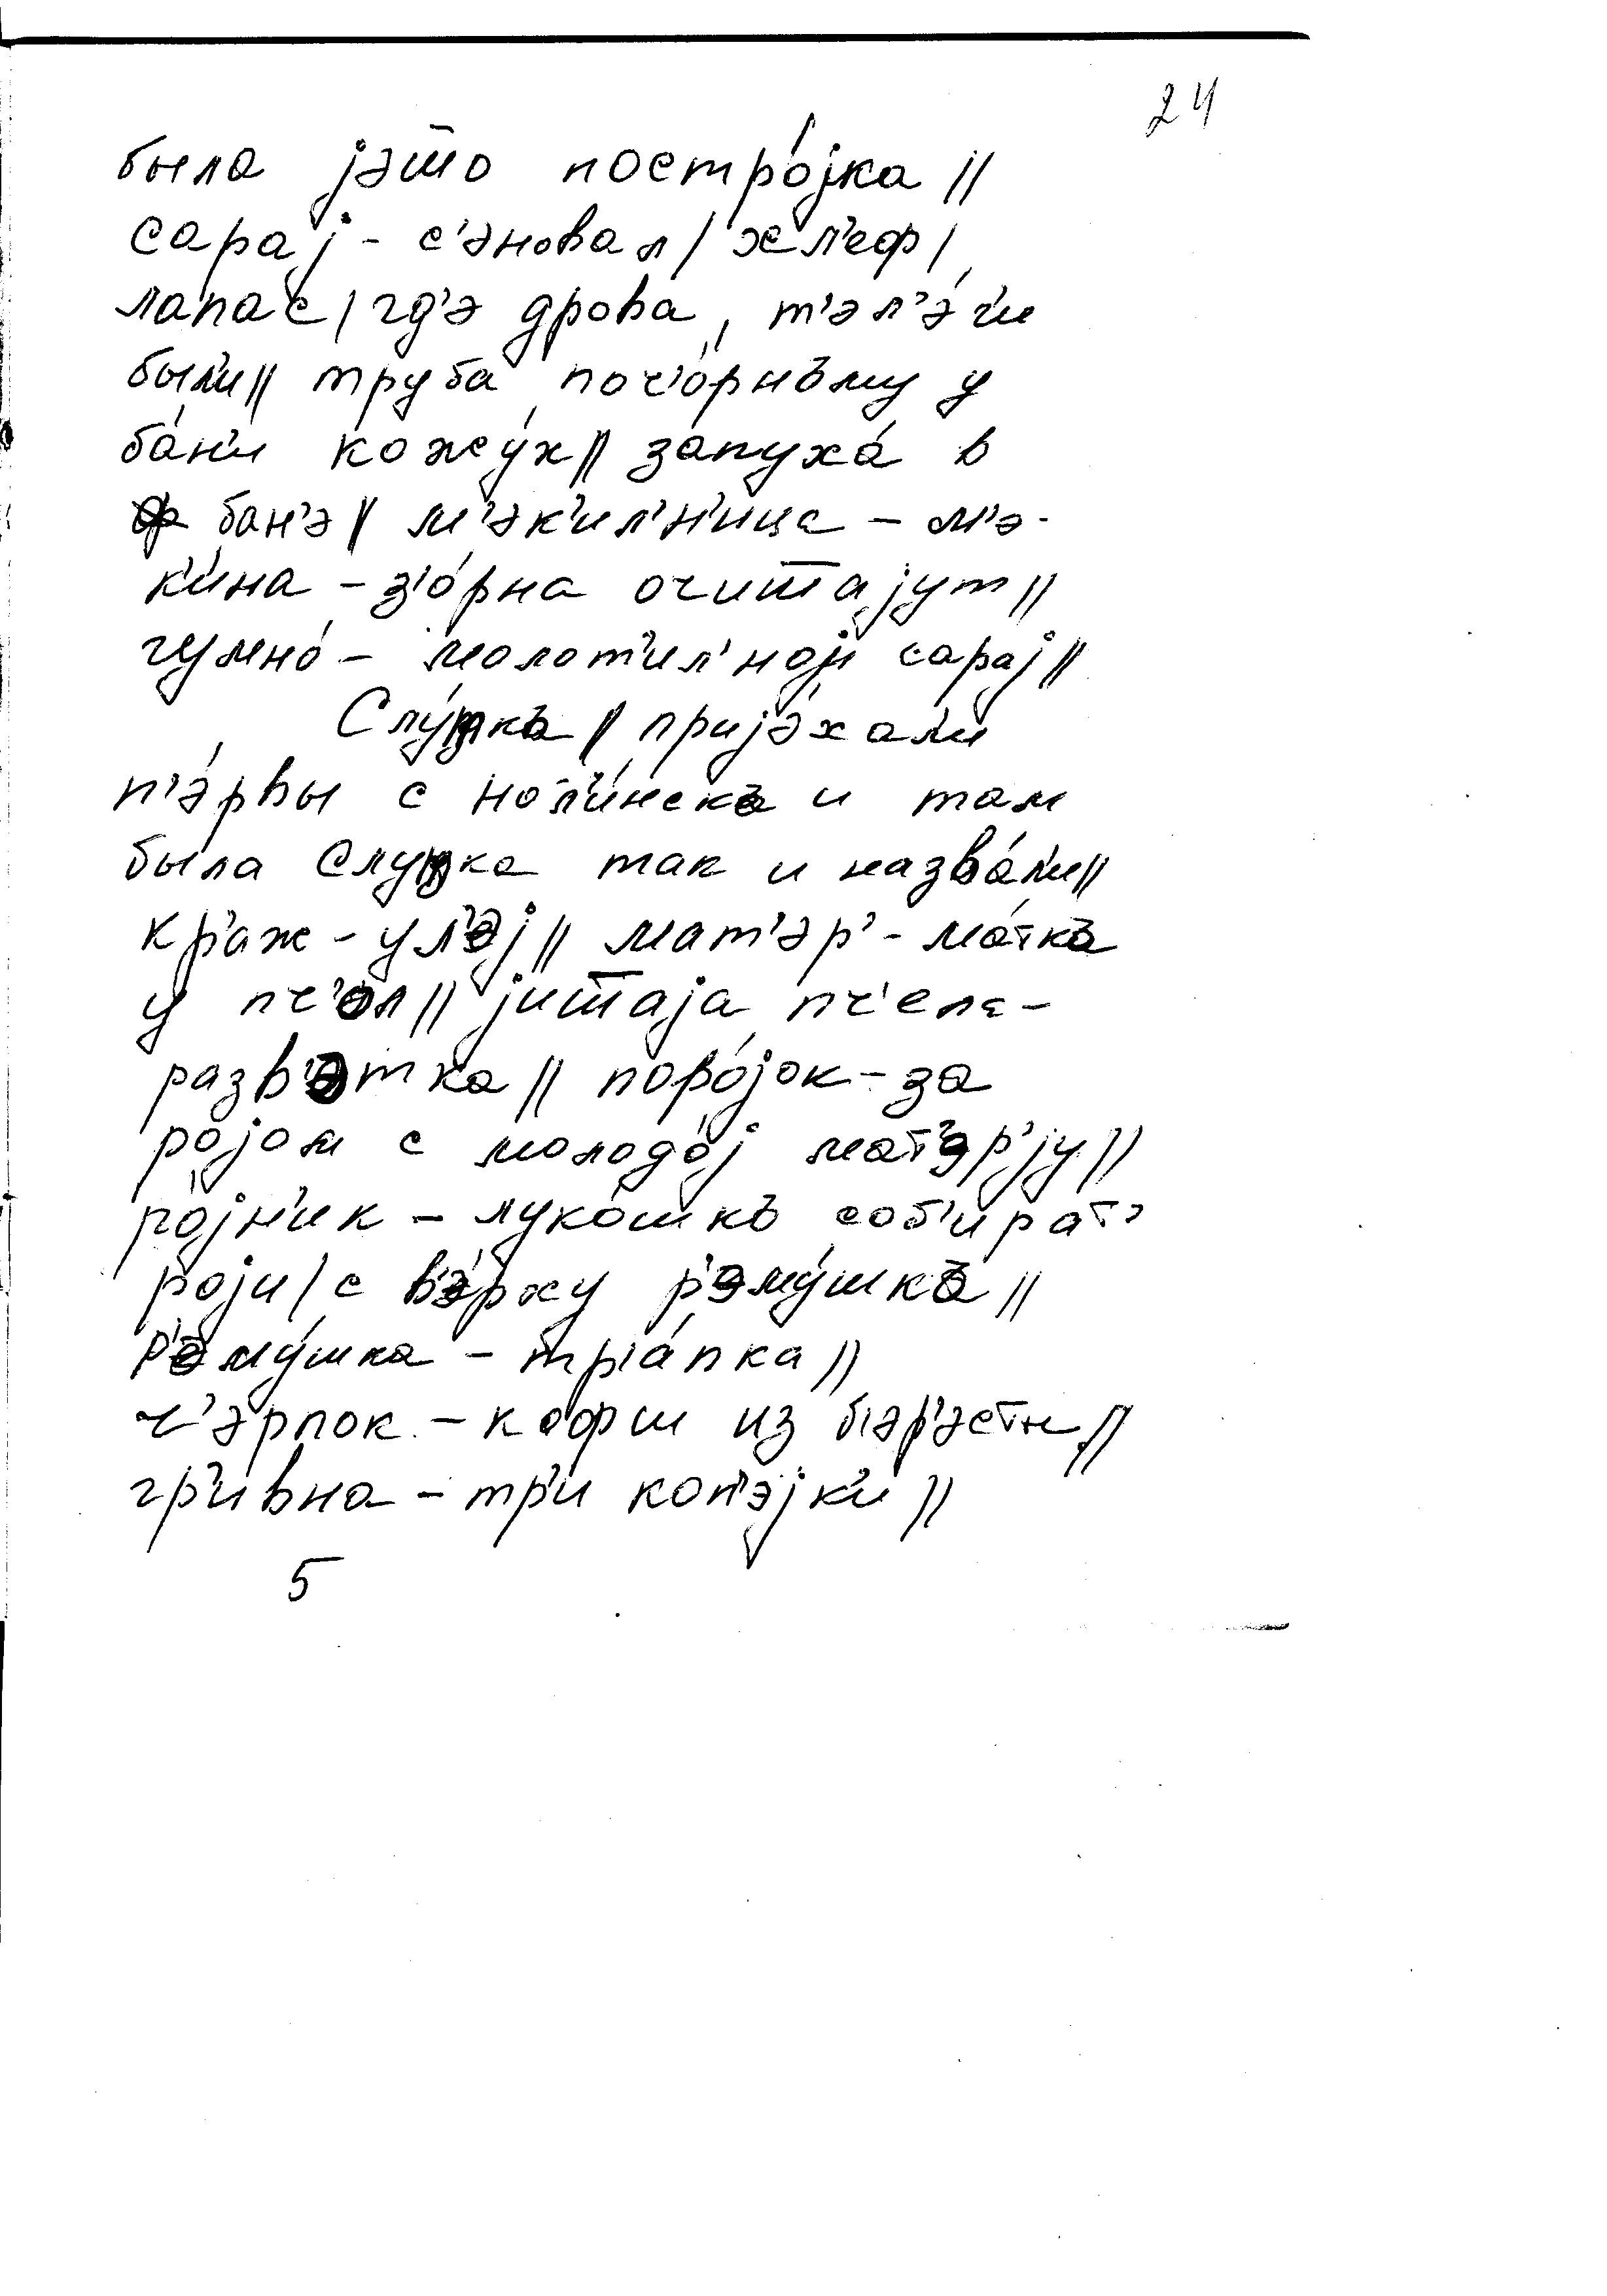 24
была jэто постро́jка //
сараj - с'эновал / хл'еф /
лапас / гд'э дрова, т'эл'э́г'и
был'и // труба поч'о́рнъму у
ба́н'и кожу́х // запуха́ в
бан'э // м'эк'ил'н'ица - м'э-
к'и́на - з'о́рна очиштаjут //
гумно́ - молот'ил'ноj сараj //
Слу́тка // приjэ́хал'и
п'э́рвы с Нол'и́нскъ и там
была Слутка так и назва́л'и //
кр'аж - ул'эj // мат'эр' - ма́ткъ
у пч'ол // jиштаjа пч'ела -
разв'этка // поро́jок - за
роjом с молодо́j мат'эр'jу //
ро́jн'ик - луко́шкъ соб'ират'
роjи / с в'э́рху р'эму́шкъ //
р'эму́шка - тр'а́пка //
ч'эрпок - кофш из б'эр'эсты //
гр'ивна - тр'и коп'эjк'и //
5